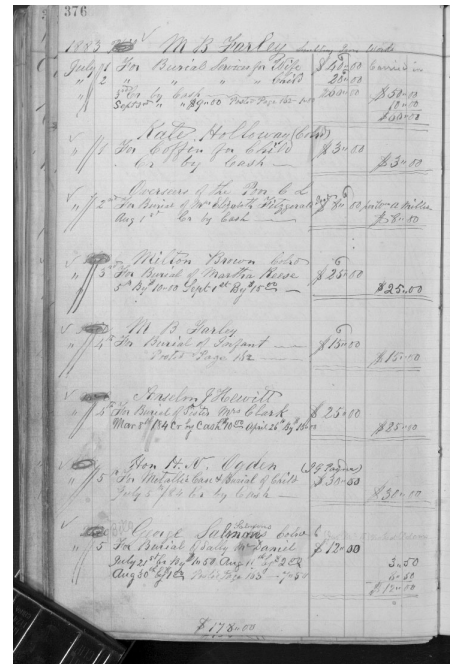 376
1883 M B Farley
July 1 For Burial Services for Wife $40.00
" 2 " " " " Child 20.00
" 3rd Cr by Cash $50.00
$9.00 Posted Page 162
Kate Holloway (Cold)
" 1 For Coffin for Child $3.00
Cr by Cash $3.00
Overseers of the Poor C L
" 2nd For Burial of Mrs Fitzgerald $8.00
Aug 1st Cr by Cash $8.00
Milton Brown Cold
" 3rd For Burial of Martha Reese $25.00
5th By $10.00 Sept 1st By $15.00 $25.00
M B Farley
" 4th For Burial of Infant $15.00
Posted Page 162 $15.00
Anselm J Hewitt
" 5th For Burial of Sister Mrs Clark $25.00
Mar 5th /84 Cr by Cash 10.00 April 26th By $15.00 $25.00
Hon H. N. Ogden
" 5th For Metallic Case & Burial of Child $30.00
July 5th /84 Cr by Cash $30.00
George Salmons Cold
" 5 For Burial of Sally McDaniel $12.00
July 21st Cr By 1.50 Aug 11th By 2.00 3.50
Aug 30th By 1.00 Posted Page 163 7.50
$12.00
$178.00